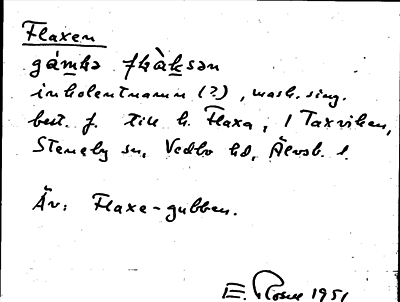 Flaxen
gám̲kə flàk̲sən
inkolentnamn (?), mask. sing.
best. f. till h. Flaxa, i Taxviken,
Steneby sn, Vedbo hd, Älvsb. l.
Äv: Flaxe-gubben.
E. Rosell 1951